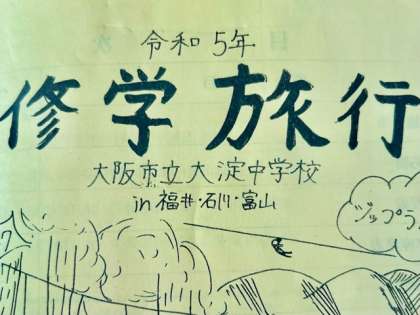 令和5年
修学旅行
大阪市立大淀中学校
in 福井・石川・富山
ジップラ